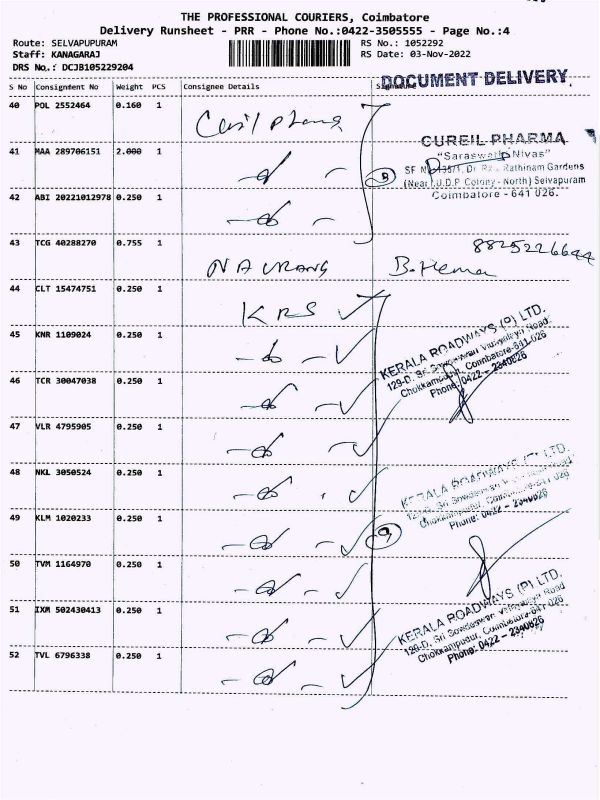 THE PROFESSIONAL COURIERS, Coimbatore
Delivery Runsheet - PRR - Phone No.:0422-3505555 - Page No.:4
Route: SELVAPUPURAM
RS No.: 1052292
Staff: KANAGARAJ
RS Date: 03-Nov-2022
DRS No.: DCJB105229204
DOCUMENT DELIVERY
S No Consignment No Weight PCS Consignee Details Signature
40 POL 2552464 0.160 1
Cureil Pharma
CUREIL PHARMA
"Saraswathi Nivas"
41 MAA 289706151 2.000 1
Rathinam Gardens
(Near U.D.P Colony - North) Selvapuram
Coimbatore - 641 026.
9
42 ABI 20221012978 0.250 1
43 TCG 40288270 0.755 1
NAURANG B. Hema 8825226644
44 CLT 15474751 0.250 1
KRS
45 KNR 1109024 0.250 1
KERALA ROADWAYS (P) LTD.
129-D, Sri Sowdeswari Vidyalaya Road
Chokkampudur, Coimbatore-641 026
Phone: 0422 - 2340826
46 TCR 30047038 0.250 1
47 VLR 4795905 0.250 1
48 NKL 3050524 0.250 1
KERALA ROADWAYS (P) LTD.
129-D, Sri Sowdeswari Vidyalaya Road
Chokkampudur, Coimbatore-641 026
Phone: 0422 - 2340826
49 KLM 1020233 0.250 1
9
50 TVM 1164970 0.250 1
51 IXM 502430413 0.250 1
KERALA ROADWAYS (P) LTD.
129-D, Sri Sowdeswari Vidyalaya Road
Chokkampudur, Coimbatore-641 026
Phone: 0422 - 2340826
52 TVL 6796338 0.250 1